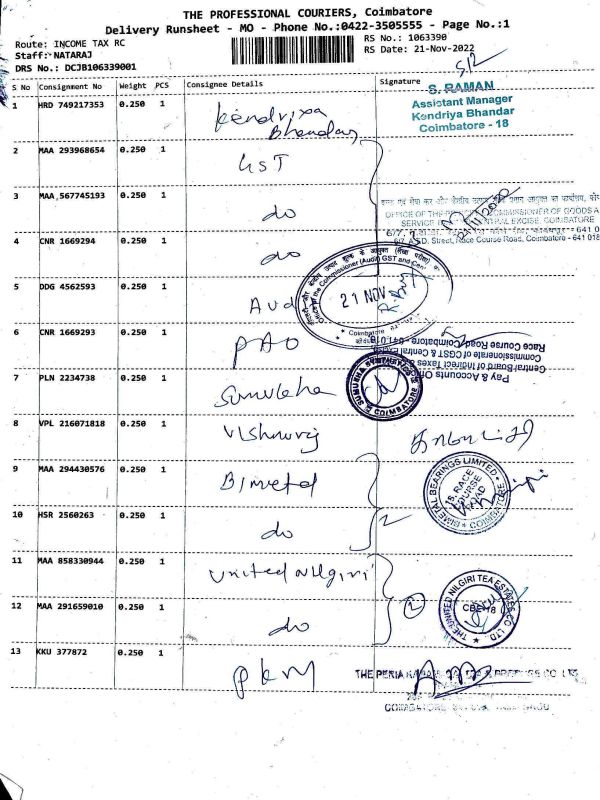 THE PROFESSIONAL COURIERS, Coimbatore
Delivery Runsheet - MO - Phone No.:0422-3505555 - Page No.:1
Route: INCOME TAX RC
RS No.: 1063390
Staff: NATARAJ
RS Date: 21-Nov-2022
DRS No.: DCJB106339001
S No Consignment No Weight PCS Consignee Details Signature
S. RAMAN
Assistant Manager
Kendriya Bhandar
Coimbatore - 18
1 HRD 749217353 0.250 1 Kendriya
Bhandar
2 MAA 293968654 0.250 1 GST
3 MAA 567745193 0.250 1 do
OFFICE OF THE COMMISSIONER OF GOODS &
SERVICE CENTRAL EXCISE, COIMBATORE
6/7, A.S.D. Street, Race Course Road, Coimbatore - 641 018
4 CNR 1669294 0.250 1 do
Commissioner (Audit) GST and
21 NOV
Coimbatore
5 DDG 4562593 0.250 1 Aud
6 CNR 1669293 0.250 1 PAO
Pay & Accounts
Central Board of Indirect Taxes &
Commissionerate of CGST & Central
Race Course Road, Coimbatore - 641 018
7 PLN 2234738 0.250 1 Sumukha
SUMUKHA SYNTHETICS
COIMBATORE
8 VPL 216071818 0.250 1 Vishnuraj
9 MAA 294430576 0.250 1 Bimetal
BIMETAL BEARINGS LIMITED
18, RACE
COURSE
ROAD
COIMBATORE
10 HSR 2560263 0.250 1 do
2
11 MAA 858330944 0.250 1 United Nilgiri
THE UNITED NILGIRI TEA ESTATES CO LTD
CBE-18
12 MAA 291659010 0.250 1 do
2
13 KKU 377872 0.250 1 PKM
THE PERIA
COIMBATORE